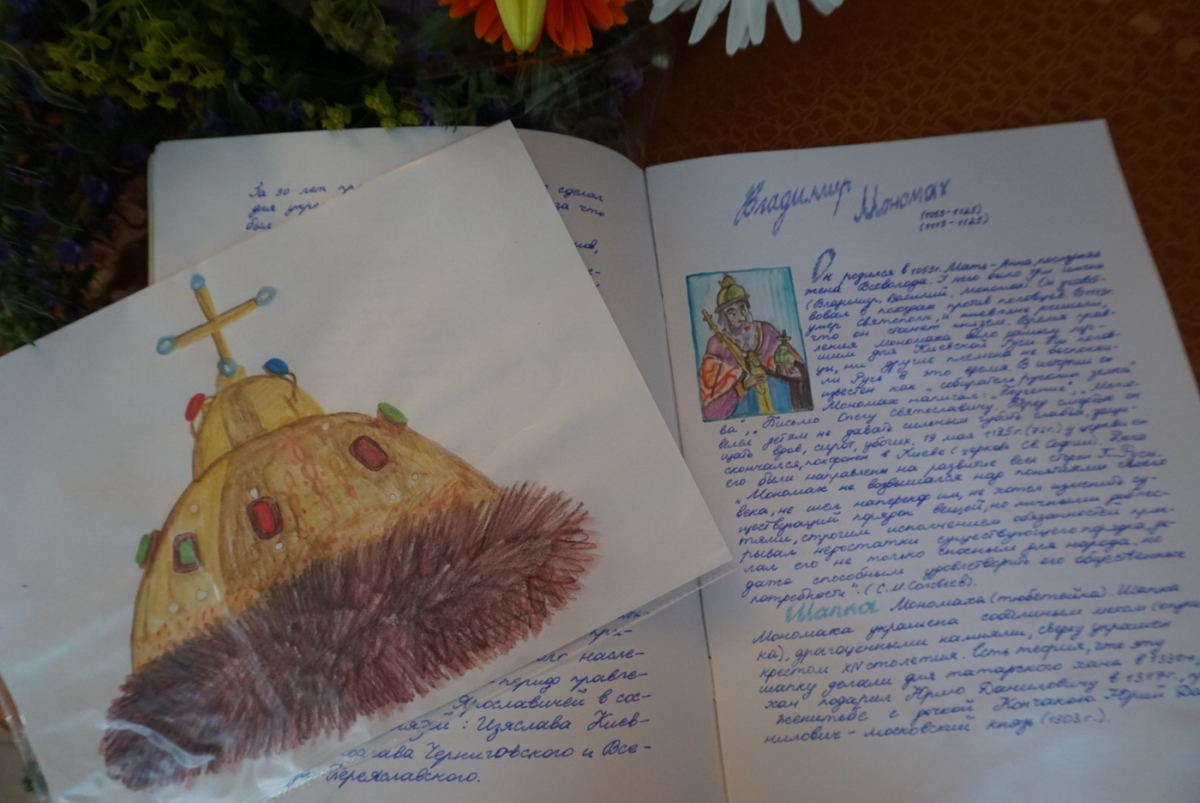 За 30 лет пра сделал
для укре за что
был
нов,
- период правле-
Ярославичей в сос-
князей: Изяслава Киев-
слава Черниговского и Все-
Переяславского.
Владимир Мономах
(1053-1125)
(1113-1125)
Он родился в 1053г. Мать-Анна, последняя
жена Всеволода. У него было три имени
(Владимир, Василий, Мономах). Он участ-
вовал в походах против половцев. Вскоре
умер Святополк, и киевляне решили,
что он станет князем. Время прав-
ления Мономаха было самым луч-
шим для Киевской Руси. Ни полов-
цы, ни другие племена не беспокои-
ли Русь в это время. В истории он
известен как "собиратель русских земель"
Мономах написал: "Поучение", Моно-
ва", "Письмо Олегу Святославичу". Перед смертью он
велел детям не давать сильным губить слабых, защи-
щать вдов, сирот, убогих. 19 мая 1125г. (72г.) у церкви он
скончался, похоронен в Киеве (церковь Св. Софии). Дела
его были направлены на развитие всех сторон К. Руси.
"Мономах не возвышался над понятиями своего
века, не шел наперекор им, не хотел изменить су-
ществующий порядок вещей, но личными доблес-
тями, строгим исполнением обязанностей прик-
рывал недостатки существующего порядка, де-
лал его не только сносным для народа, но
даже способным удовлетворить его общественные
потребности". (С.М. Соловьев).
Шапка Мономаха (тюбетейка). Шапка
Мономаха украшена соболиным мехом (опуш
ка), драгоценными камнями, сверху украшен
крестом XIV столетия. Есть теория, что эту
шапку делали для татарского хана в 1330-х
хан подарил Юрию Даниловичу в 1317г.
женитьбе с дочкой Кончакой Юрий Да
нилович - московский князь (1303г.).